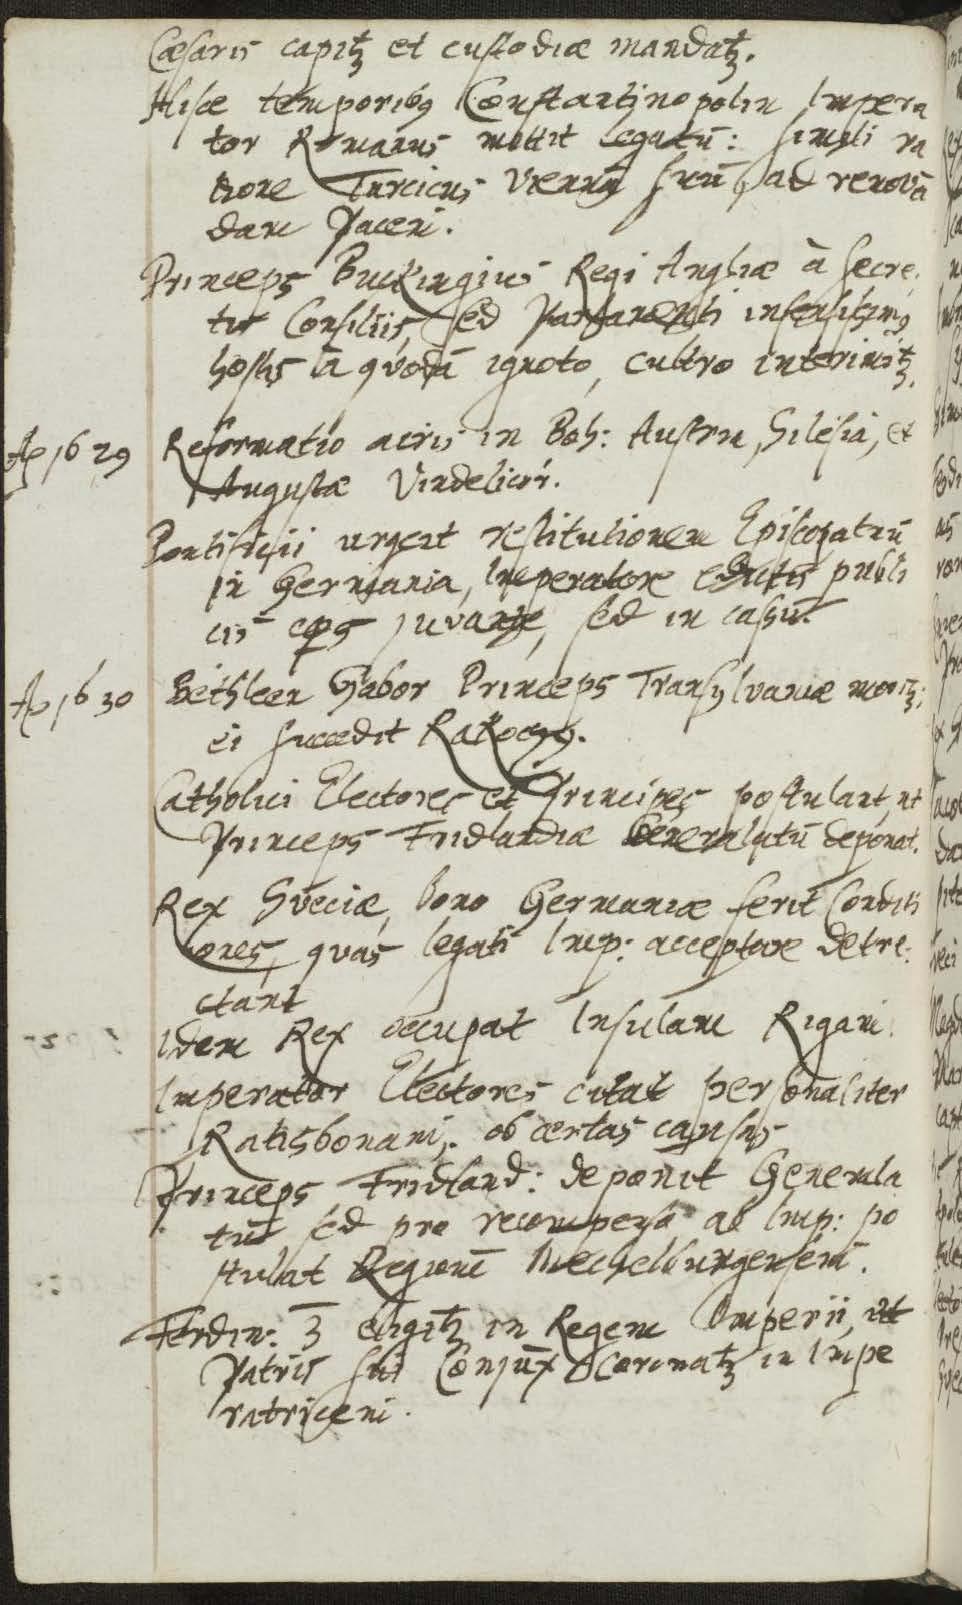 Cæsaris capitꝫ et custodiæ mandatꝫ.
Hisce temporibꝰ Constantinopolin Impera
tor Romanus mittit Legatū: simili ra
tione Turcicus Viennā suū, ad renovā
dam Pacem.
Princeps Buckingius Regi Angliæ à secre:
tis Consiliis, sed Parlamenti infensissimꝰ
hostis à quodā ignoto, cultro interimitꝫ.
Aō 1629 Reformatio acris in Boh: Austria, Silesia, et
Augustæ Vindelicor.
Pontificii urgent restitutionem Episcopatuū
in Germania, Imperatore edictis publi
cis eos juvante, sed in cassū.
Aō 1630 Bethleen Gabor Princeps Transylvaniæ moritꝫ;
ei succedit Rakoczy.
Catholici Electores et Principes postulant, ut
Princeps Fridlandiæ Generalatū deponat.
Rex Sveciæ, bono Germaniæ ferit Conditi
ones, quas legati Imp: acceptare detre:
ctant
Idem Rex occupat Insulam Rigam.
Imperator Electores citat personaliter
Ratisbonam, ob certas causas
Princeps Fridland: deponit Generala
tū sed pro recompensa ab Imp: po
stulat Regionē Mechelburgensem.
Ferdin: 3 eligitꝫ in Regem Imperii, et
Patris sui Conjux Coronatꝫ in Impe
ratricem.